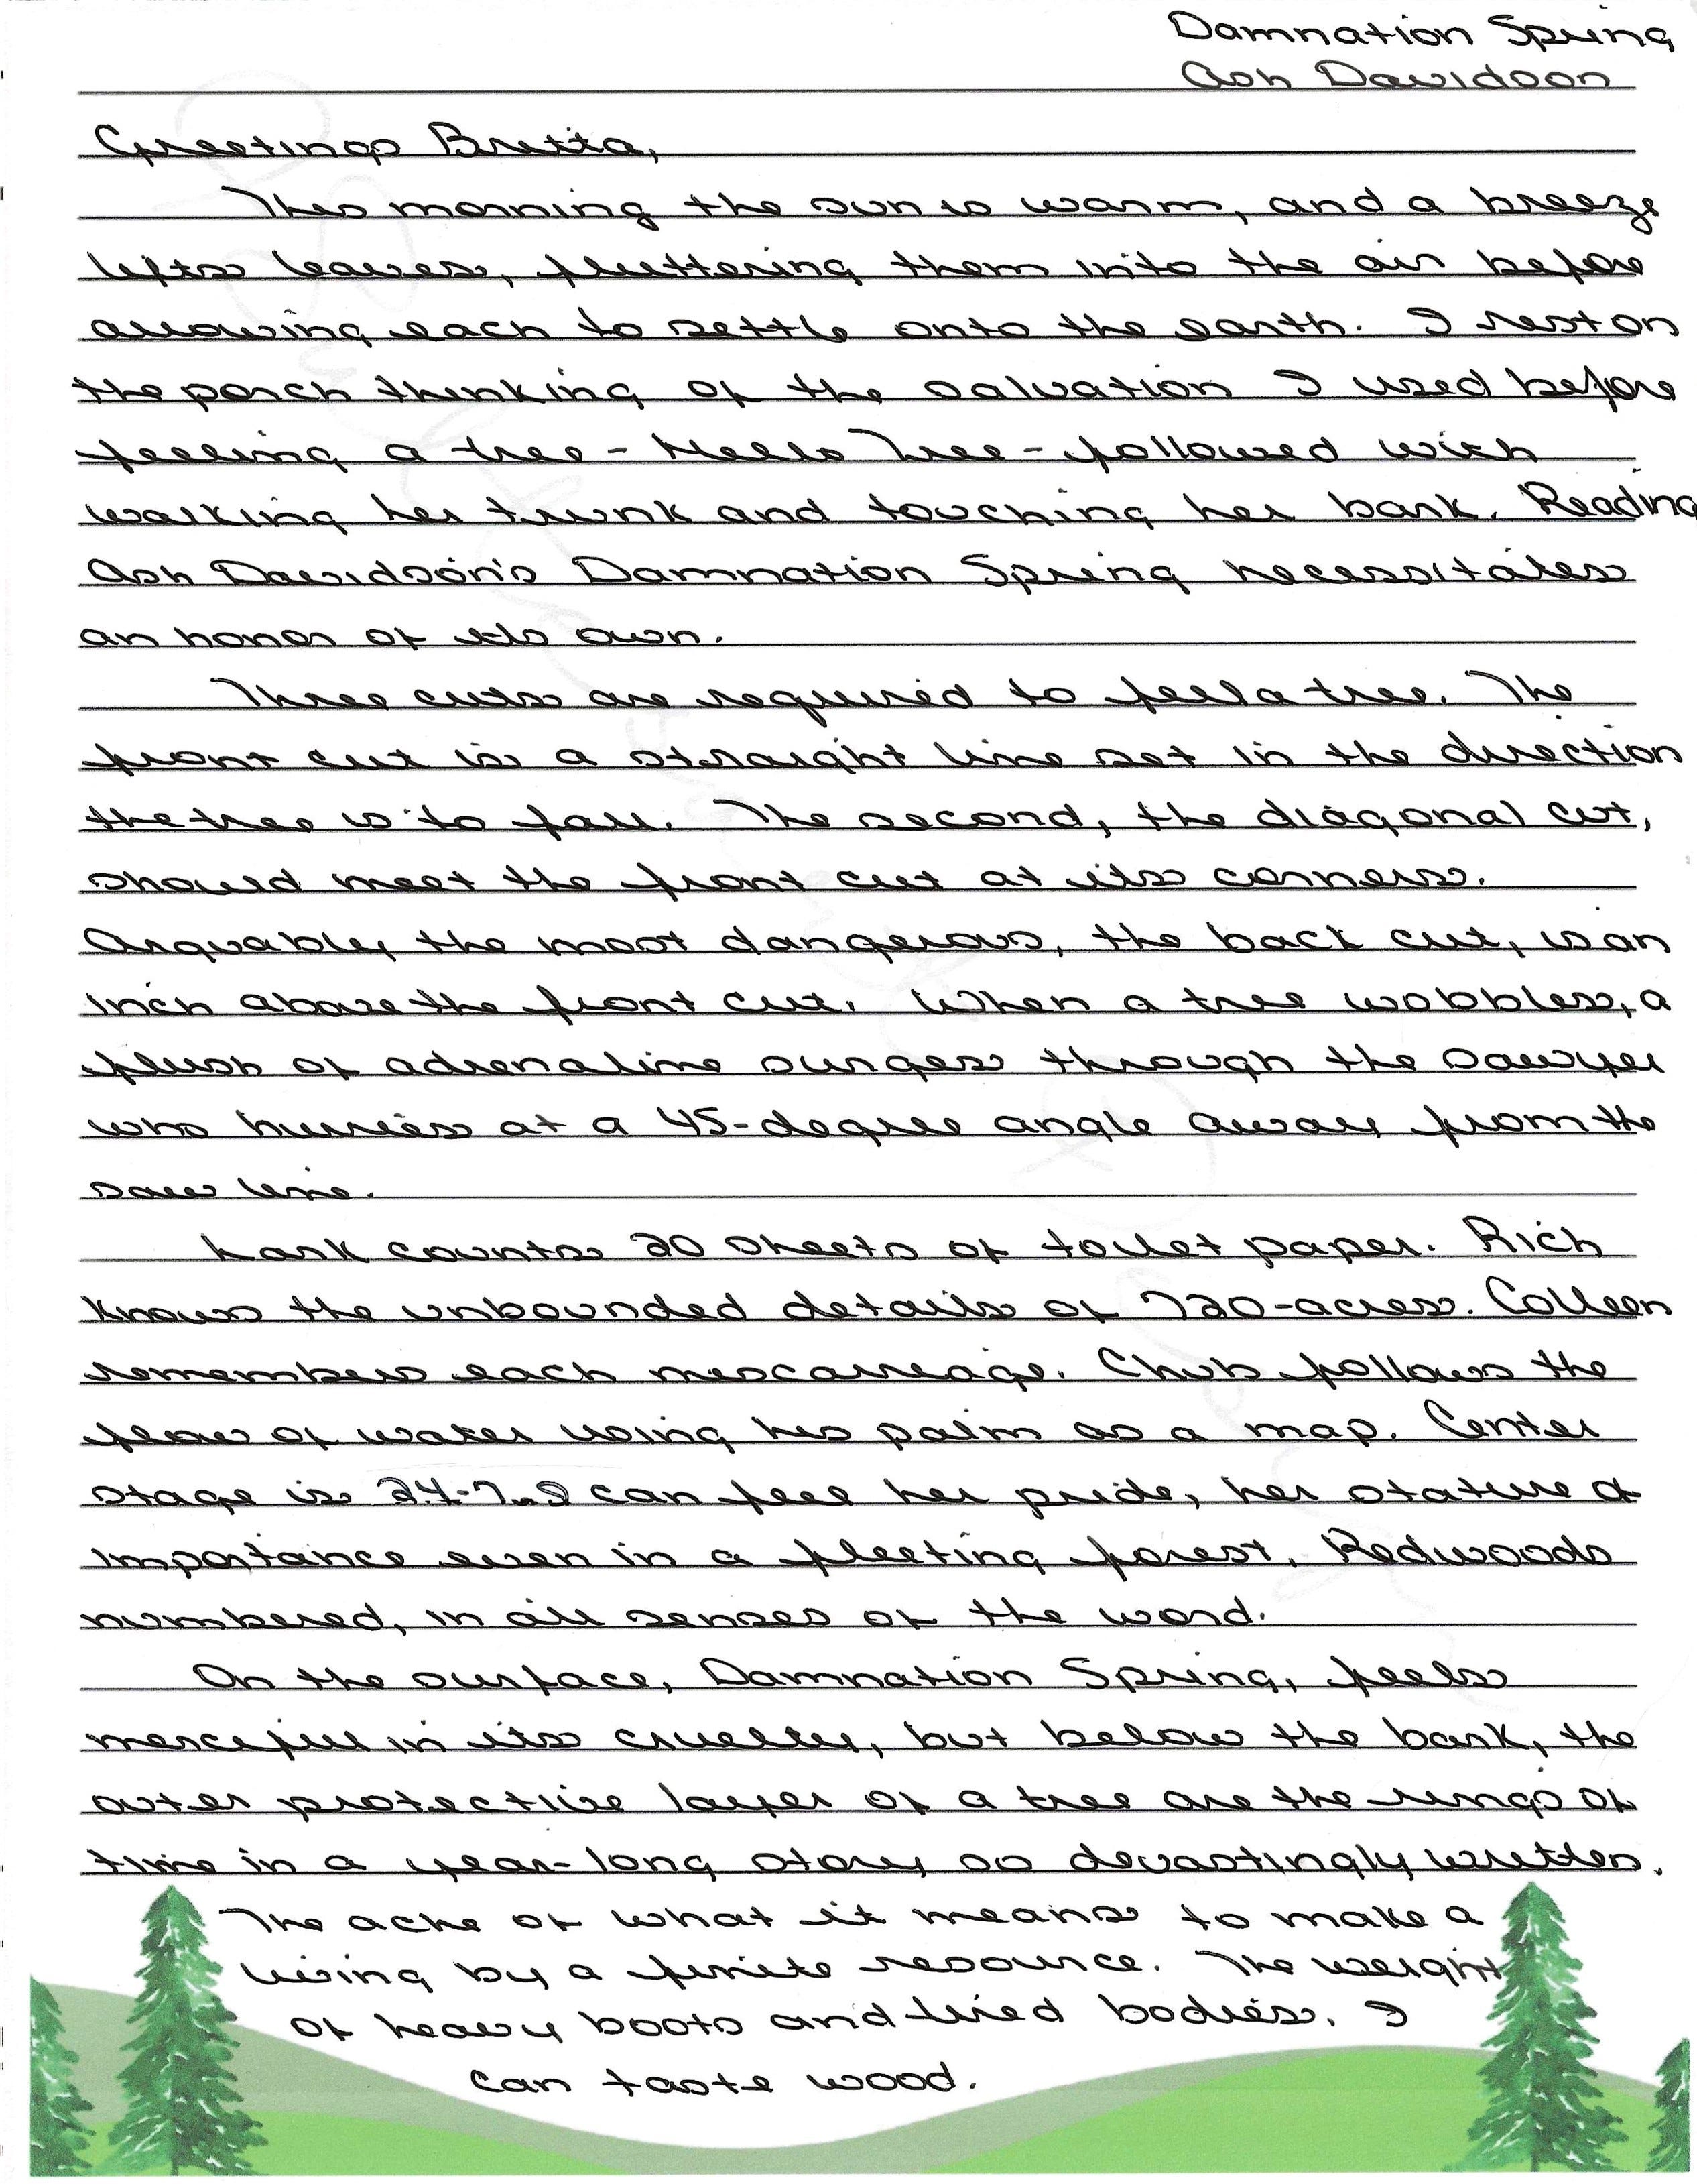 Damnation Spring
Ash Davidson
Greetings Bretta,
This morning the sun is warm, and a breeze
lifts leaves, fluttering them into the air before
allowing each to settle onto the earth. I rest on
the porch thinking of the salvation I used before
felling a tree - Hello Tree - followed with
walking her trunk and touching her bark. Reading
Ash Davidson's Damnation Spring necessitates
an honor of its own.
Three cuts are required to fell a tree. The
front cut is a straight line set in the direction
the tree is to fall. The second, the diagonal cut,
should meet the front cut at its corners.
Arguably the most dangerous, the back cut, is an
inch above the front cut. When a tree wobbles, a
flush of adrenaline surges through the sawyer
who hurries at a 45-degree angle away from the
saw line.
Lark counts 20 sheets of toilet paper. Rich
knows the unbounded details of 720-acres. Colleen
remembers each miscarriage. Chub follows the
flow of water using his palm as a map. Center
stage is 24-7. I can feel her pride, her stature of
importance even in a fleeting forest. Redwoods
numbered, in all senses of the word.
On the surface, Damnation Spring, feels
merciful in its cruelty, but below the bark, the
outer protective layer of a tree are the rings of
time in a year-long story so devastingly written.
The ache of what it means to make a
living by a finite resource. The weight
of heavy boots and tired bodies. I
can taste wood.